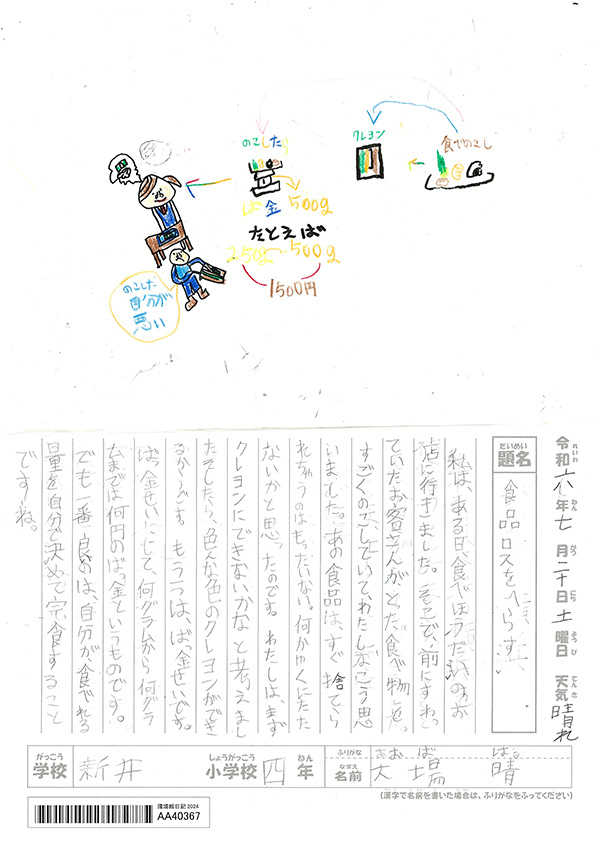 食べのこし
クレヨン
のこした
ばっ金 500g
たとえば
250g〜500g
1500円
のこした
自分が
悪い
令和六年七月二十日土曜日 天気 晴れ
れいわ ねん がつ にち ようび てんき
だいめい
題名
食品ロスをへらす
私は、ある日、食べほうだいのお
店に行きました。そこで、前にすわっ
ていたお客さんが、とった食べ物を、
すごくのこしていて、わたしはこう思
いました。あの食品は、すぐ捨てら
れちゃうのはもったいない。何かやくにたた
ないかと思ったのです。わたしは、まず
クレヨンにできないかなと考えまし
たそしたら、色んな色のクレヨンができ
るから〜です。もう一つは、ばっ金せいです。
ばっ金せいにして、何グラムから何グラ
ムまでは何円のばっ金というものです。
でも一番良いのは、自分が食べれる
量を自分で決めて完食すること
ですね。
がっこう
学校
新井
しょうがっこう
小学校
四
ねん
年
ふりがな
おおば はる
なまえ
名前
大場 晴
(漢字で名前を書いた場合は、ふりがなをふってください)
環境絵日記2024
AA40367